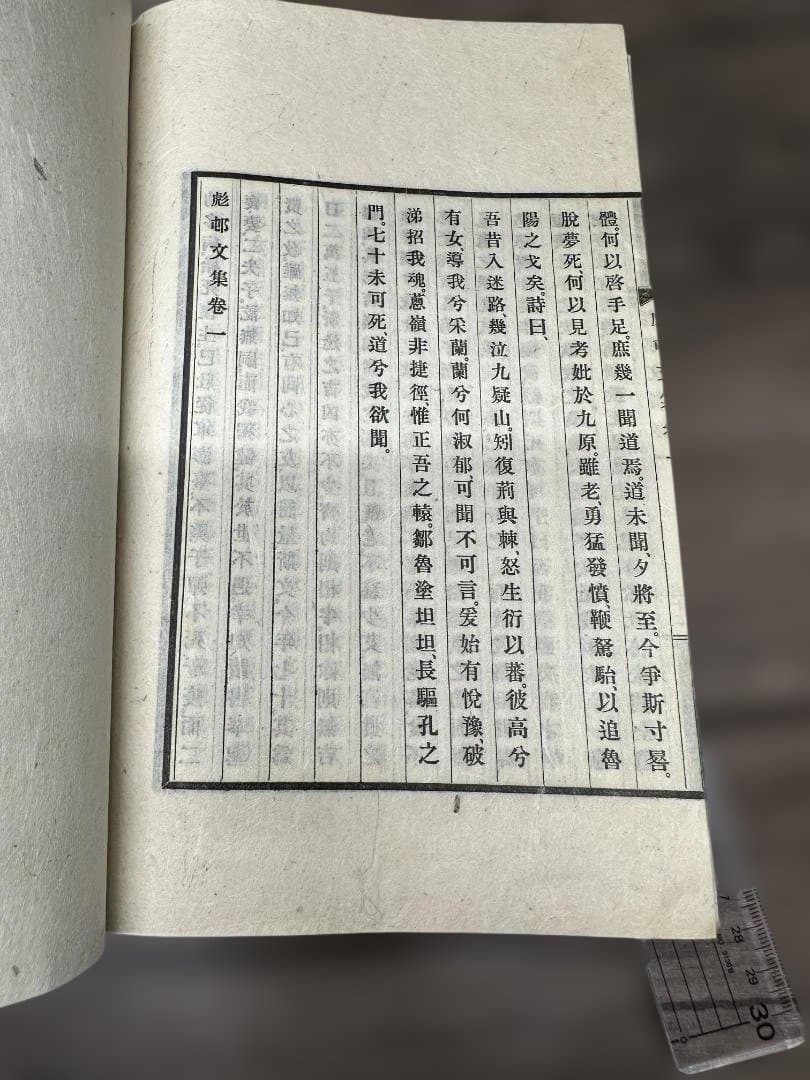 體。何以啓手足。庶幾一聞道焉。道未聞、夕將至。今爭斯寸晷。
脫夢死、何以見考妣於九原。雖老、勇猛發憤、鞭駑駘、以追魯
陽之戈矣。詩曰、
吾昔入迷路、幾泣九疑山。矧復荊與棘、怒生衍以蕃。彼高兮
有女、導我兮采蘭。蘭兮何淑郁、可聞不可言。爰始有悅豫、破
涕招我魂。蔥嶺非捷徑、惟正吾之轅。鄒魯塗坦坦、長驅孔之
門。七十未可死、道兮我欲聞。
彪邨文集卷一
28
29
30